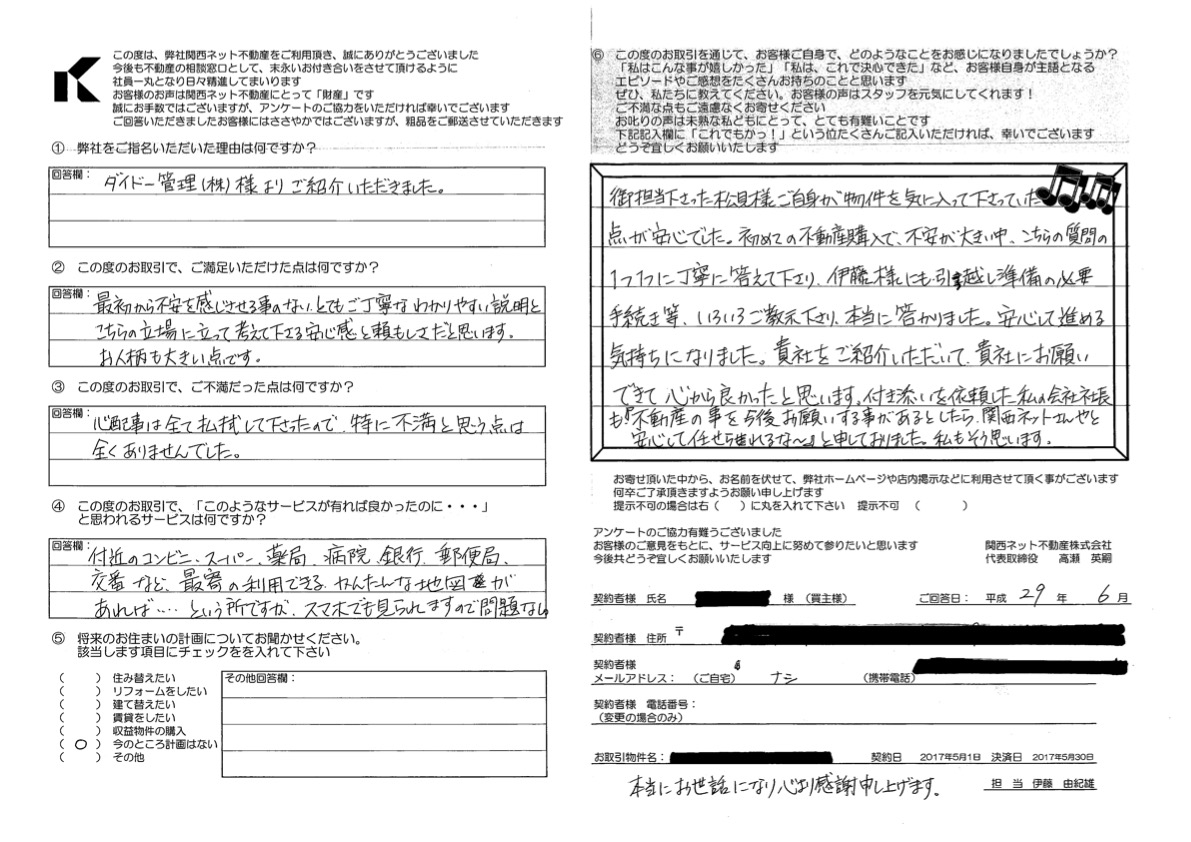 この度は、弊社関西ネット不動産をご利用頂き、誠にありがとうございました
今後も不動産の相談窓口として、末永いお付き合いをさせて頂けるように
社員一丸となり日々精進してまいります
お客様のお声は関西ネット不動産にとって「財産」です
誠にお手数ではございますが、アンケートのご協力をいただければ幸いでございます
ご回答いただきましたお客様にはささやかではございますが、粗品をご郵送させていただきます
① 弊社をご指名いただいた理由は何ですか？
回答欄：
ダイドー管理(株)様よりご紹介いただきました。
② この度のお取引で、ご満足いただけた点は何ですか？
回答欄：
最初から不安を感じさせる事のない、とてもご丁寧なわかりやすい説明と
こちらの立場に立って考えて下さる安心感と頼もしさだと思います。
お人柄も大きい点です。
③ この度のお取引で、ご不満だった点は何ですか？
回答欄：
心配事は全て払拭して下さったので、特に不満と思う点は
全くありませんでした。
④ この度のお取引で、「このようなサービスが有れば良かったのに・・・」
と思われるサービスは何ですか？
回答欄：
付近のコンビニ、スーパー、薬局、病院、銀行、郵便局、
交番など、最寄の利用できる、かんたんな地図が
あれば…. という所ですが、スマホでも見られますので問題なし
⑤ 将来のお住まいの計画についてお聞かせください。
該当します項目にチェックをを入れて下さい
（　　） 住み替えたい
（　　） リフォームをしたい
（　　） 建て替えたい
（　　） 賃貸をしたい
（　　） 収益物件の購入
（ ○ ） 今のところ計画はない
（　　） その他
その他回答欄：
⑥ この度のお取引を通じて、お客様ご自身で、どのようなことをお感じになりましたでしょうか？
「私はこんな事が嬉しかった」「私は、これで決心できた」など、お客様自身が主語となる
エピソードやご感想をたくさんお持ちのことと思います
ぜひ、私たちに教えてください。お客様の声はスタッフを元気にしてくれます！
ご不満な点もご遠慮なくお寄せください
お叱りの声は未熟な私どもにとって、とても有難いことです
下記記入欄に「これでもかっ！」という位たくさんご記入いただければ、幸いでございます
どうぞ宜しくお願いいたします
御担当下さった松見様ご自身が物件を気に入って下さっていた
点が安心でした。初めての不動産購入で、不安が大きい中、こちらの質問の
1つ1つに丁寧に答えて下さり、伊藤様にも引越し準備の必要
手続き等、いろいろご教示下さり、本当に答かりました。安心して進める
気持ちになりました。貴社をご紹介いただいて、貴社にお願い
できて心から良かったと思います。付き添いを依頼した私の会社社長
も『不動産の事を今後お願いする事があるとしたら、関西ネットさんやと
安心して任せられるな〜』と申しておりました。私もそう思います。
お寄せ頂いた中から、お名前を伏せて、弊社ホームページや店内掲示などに利用させて頂く事がございます
何卒ご了承頂きますようお願い申し上げます
提示不可の場合は右（　　）に丸を入れて下さい　提示不可　（　　　）
アンケートのご協力有難うございました
お客様のご意見をもとに、サービス向上に努めて参りたいと思います
今後共どうぞ宜しくお願いいたします
関西ネット不動産株式会社
代表取締役　高瀬　英嗣
契約者様 氏名　様（買主様）　ご回答日： 平成 29 年 6 月
契約者様 住所 〒
契約者様
メールアドレス：（ご自宅） ナシ （携帯電話）
契約者様 電話番号：
（変更の場合のみ）
お取引物件名：　契約日 2017年5月1日 決済日 2017年5月30日
担 当 伊藤 由紀雄
本当にお世話になり心より感謝申し上げます。